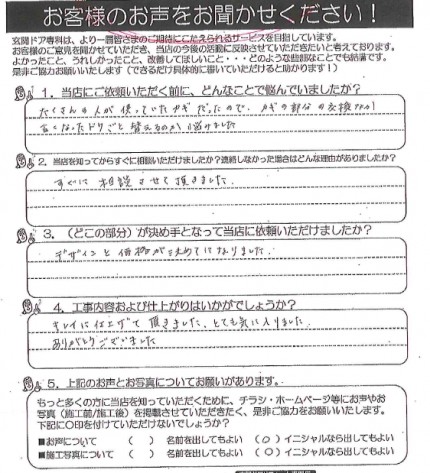 お客様のお声をお聞かせください！
玄関ドア専科は、より一層皆さまのご期待にこたえられるサービスを目指しています。
お客様のご意見を聞かせていただき、当店の今後の活動に反映させていただきたいと考えております。
よかったこと、うれしかったこと、改善してほしいこと・・・どのような些細なことでも結構です。
是非ご協力お願いいたします（できるだけ具体的に書いていただけると助かります！）
1．当店にご依頼いただく前に、どんなことで悩んでいましたか？
たくさんの人が使っていたカギだったので、カギの部分の交換
ドアごと替えるのか悩みました
2．当店を知ってからすぐに相談いただけましたか？連絡しなかった場合はどんな理由がありましたか？
すぐに相談させて頂きました。
3．（どこの部分）が決め手となって当店に依頼いただけましたか？
デザインと価格が決めてになりました。
4．工事内容および仕上がりはいかがでしょうか？
キレイに仕上げて頂きました。とても気に入りました。
ありがとうございました
5．上記のお声とお写真についてお願いがあります。
もっと多くの方に当店を知っていただくために、チラシ・ホームページ等にお声やお
写真（施工前/施工後）を掲載させていただきたく、是非ご協力をお願いいたします。
下記に〇印を付けていただけないでしょうか？
■お声について （ ）名前を出してもよい （〇）イニシャルなら出してもよい
■施工写真について （ ）名前を出してもよい （〇）イニシャルなら出してもよい